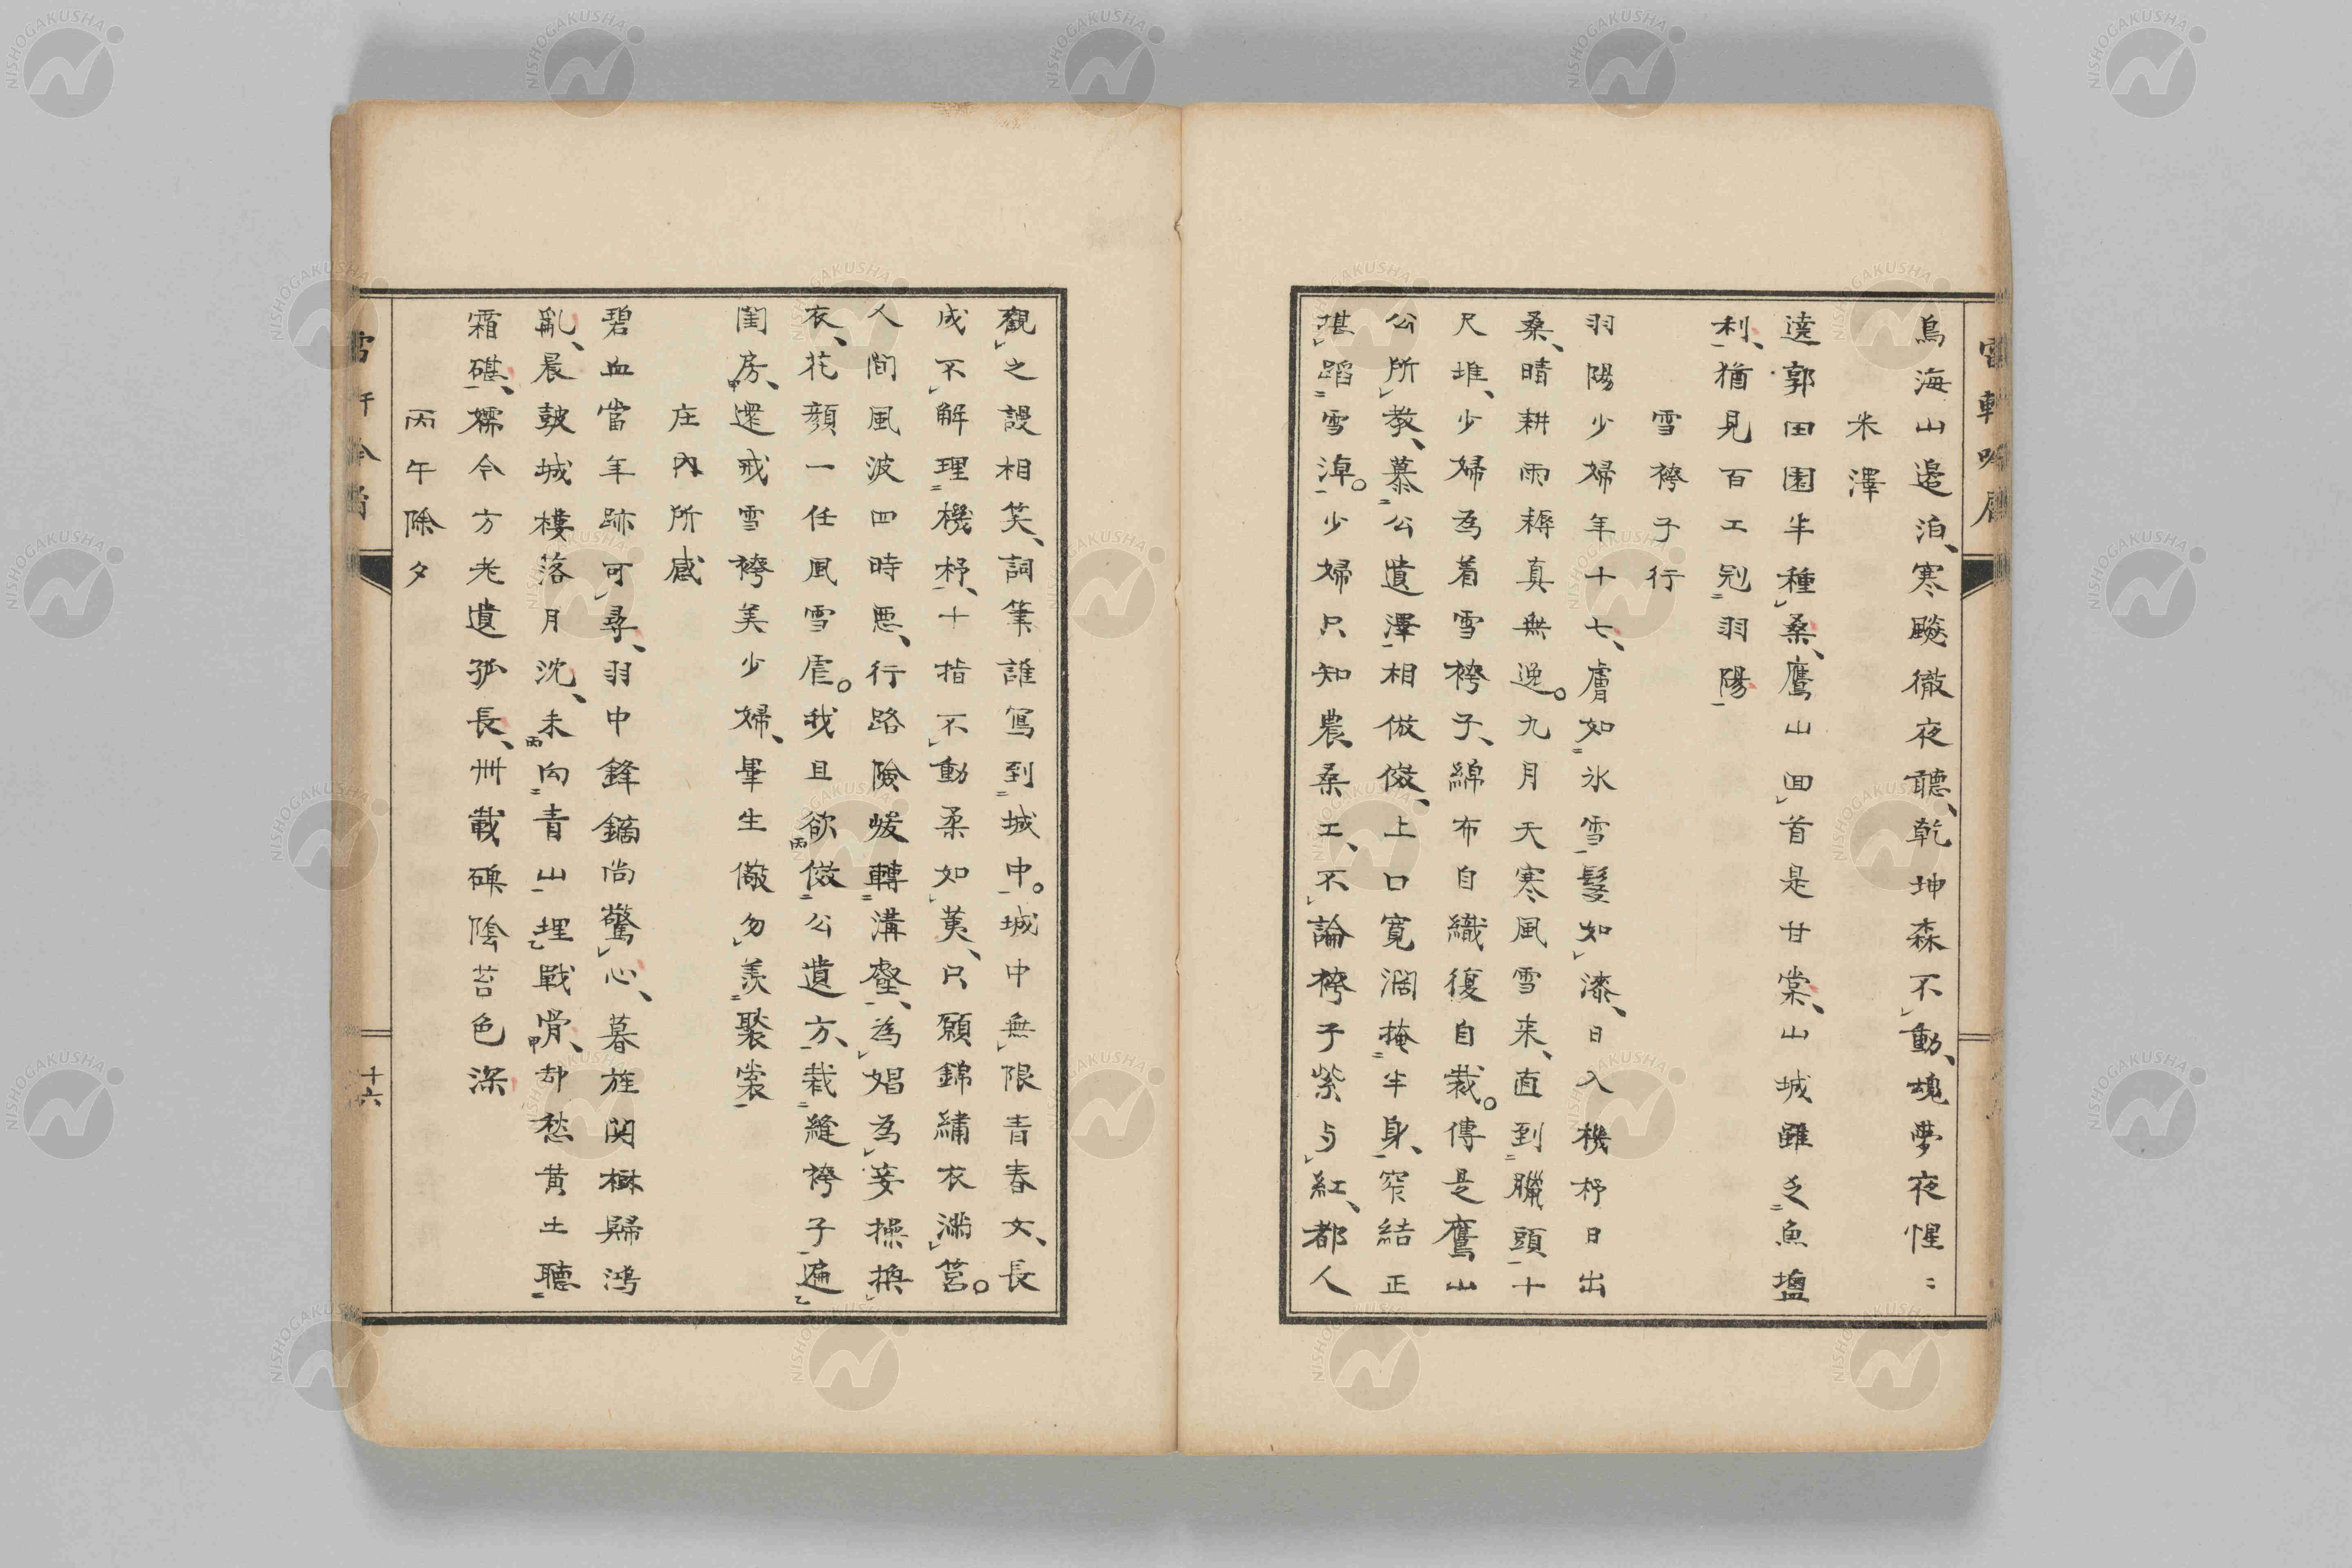 鳥海山邉泊、寒颷徹夜聽、乾坤森不動、魂夢夜惺〻
米澤
遶郭田園半種桑、鷹山回首是甘棠、山城雖乏魚鹽
利、猶見百工冠羽陽
雪袴子行
羽陽少婦年十七、膚如氷雪髮如漆、日入機杼日出
桑、晴耕雨耨真無逸。九月天寒風雪来、直到臘頭十
尺堆、少婦為着雪袴子、綿布自織復自裁。傳是鷹山
公所教、慕公遺澤相倣傚、上口寬濶掩半身、窄結正
堪蹈雪淖。少婦只知農桑工、不論袴子紫与紅、都人
觀之謾相笑、詞筆誰寫到城中。城中無限青春女、長
成不解理機杼、十指不動柔如荑、只願錦繡衣滿筥。
人間風波四時悪、行路險巇轉溝壑、為娼為妾操換
衣、花顔一任風雪虐。我且欲傚公遺方、裁縫袴子遍
閨房、還戒雪袴美少婦、畢生儆勿羨褧裳
庄内所感
碧血當年跡可尋、羽中鋒鏑尚驚心、暮旌関樹歸鴻
亂、晨皷城樓落月沈、未向青山埋戰骨、却愁黄土聽
霜碪、襦令方老遺孤長、卅載碑陰苔色深
丙午除夕
十六
NISHOGAKUSHA